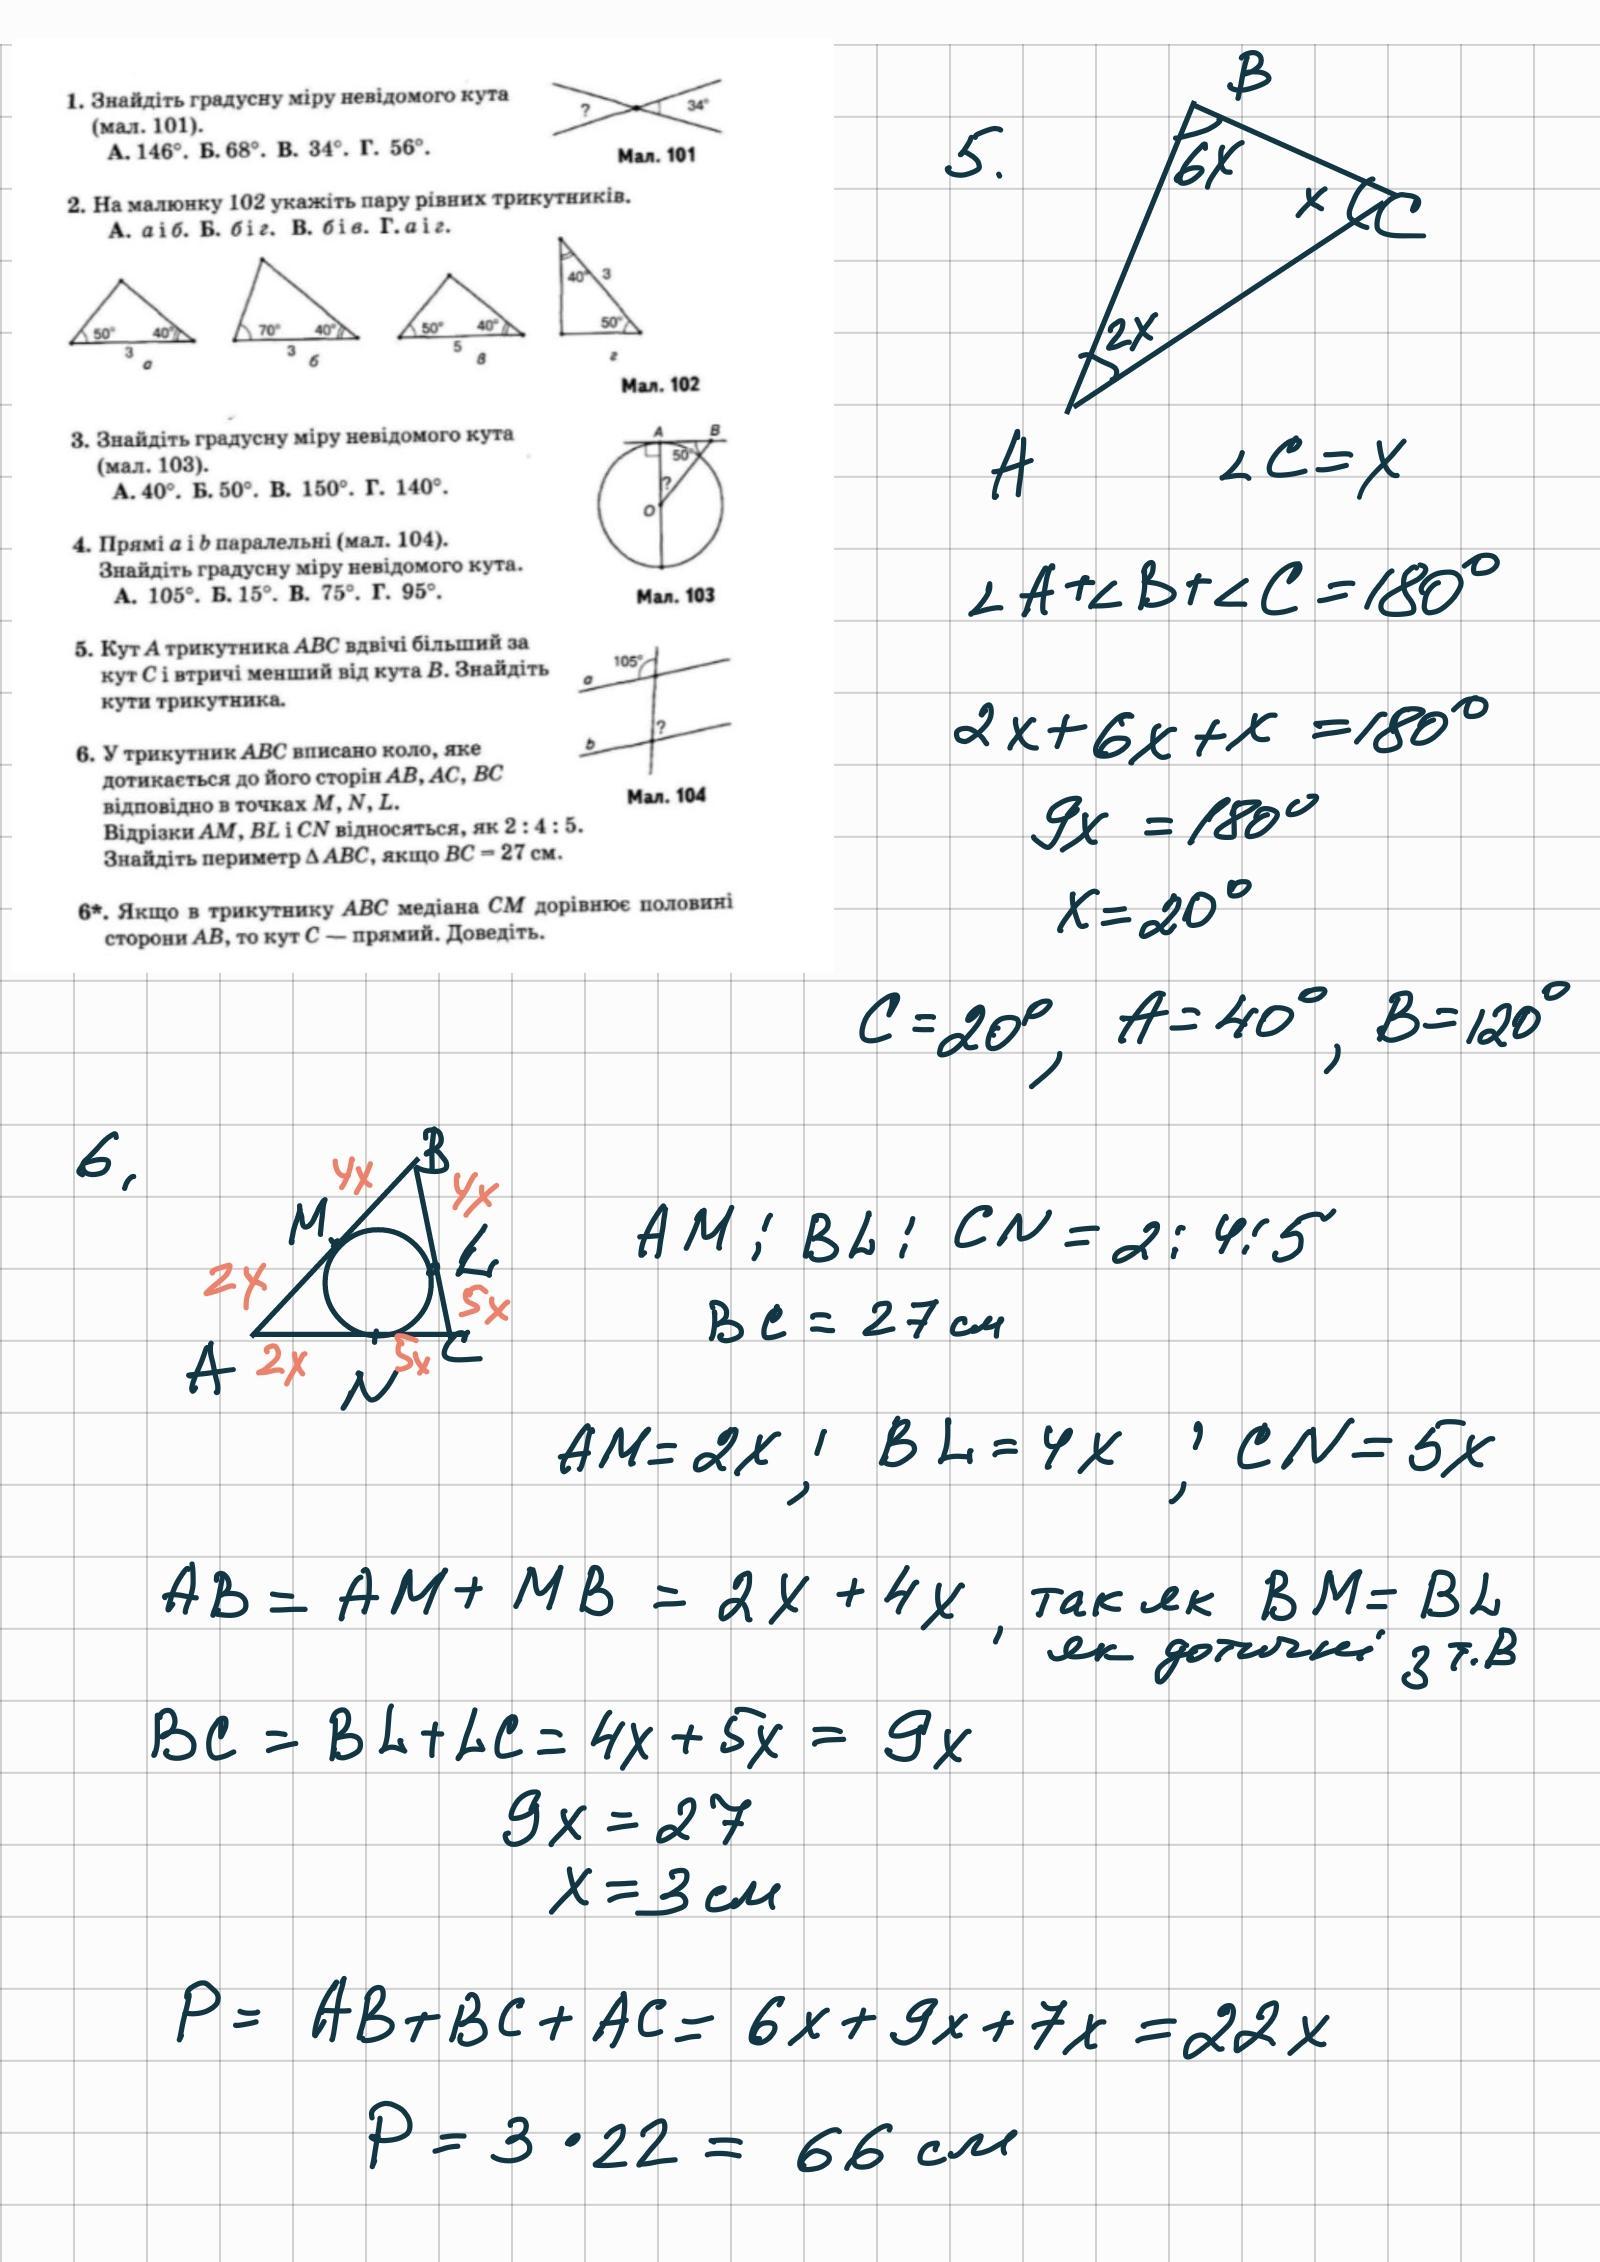 1. Знайдіть градусну міру невідомого кута
(мал. 101).
А. 146°. Б. 68°. В. 34°. Г. 56°.
? 34°
Мал. 101
2. На малюнку 102 укажіть пару рівних трикутників.
А. а і б. Б. б і г. В. б і в. Г. а і г.
50° 40° 3 а
70° 40° 3 б
50° 40° 5 в
40° 3 50° г
Мал. 102
3. Знайдіть градусну міру невідомого кута
(мал. 103).
А. 40°. Б. 50°. В. 150°. Г. 140°.
A B
50°
?
O
Мал. 103
4. Прямі a і b паралельні (мал. 104).
Знайдіть градусну міру невідомого кута.
А. 105°. Б. 15°. В. 75°. Г. 95°.
5. Кут A трикутника ABC вдвічі більший за
кут C і втричі менший від кута B. Знайдіть
кути трикутника.
105°
a
?
b
Мал. 104
6. У трикутник ABC вписано коло, яке
дотикається до його сторін AB, AC, BC
відповідно в точках M, N, L.
Відрізки AM, BL і CN відносяться, як 2 : 4 : 5.
Знайдіть периметр Δ ABC, якщо BC = 27 см.
6*. Якщо в трикутнику ABC медіана CM дорівнює половині
сторони AB, то кут C — прямий. Доведіть.
5.
B
6x
x C
2x
A
∠C = x
∠A+∠B+∠C = 180°
2x+6x+x = 180°
9x = 180°
x = 20°
C = 20°, A = 40°, B = 120°
6.
B
4x 4x
M
L
2x 5x
A 2x N 5x C
AM : BL : CN = 2 : 4 : 5
BC = 27 см
AM = 2x ; BL = 4x ; CN = 5x
AB = AM + MB = 2x + 4x, так як BM = BL
як дотичні з т. B
BC = BL + LC = 4x + 5x = 9x
9x = 27
x = 3 см
P = AB+BC+AC = 6x+9x+7x = 22x
P = 3 · 22 = 66 см